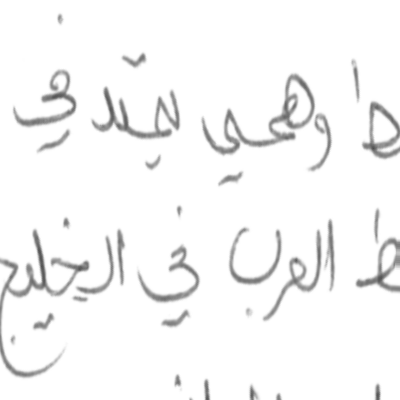 ط وهمي يمتد في
ط العرب في الخليج